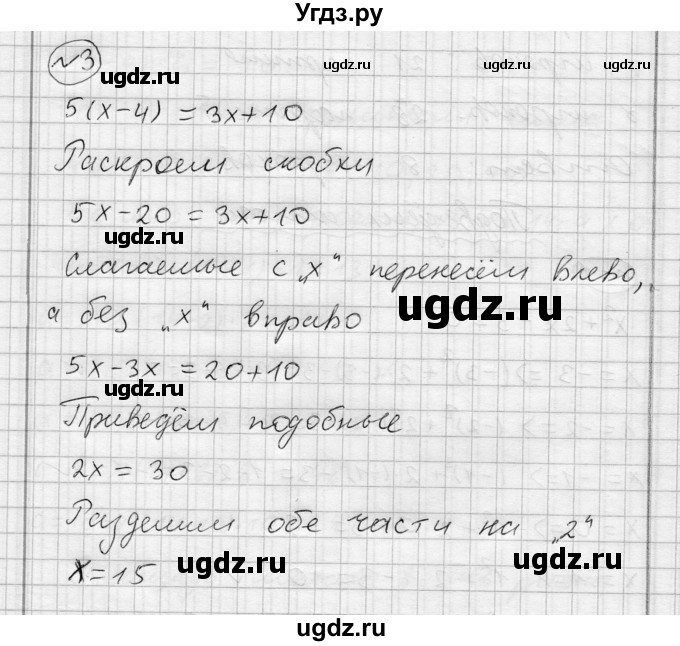 Угдз.ру
№3
ugdz.ru ugdz.ru ugdz.ru
5(x-4) = 3x+10
Раскроем скобки
5x-20 = 3x+10
ugdz.ru
Слагаемые с „x“ перенесём влево,
а без „x“ вправо
ugdz.ru
5x-3x = 20+10
ugdz.ru
Приведём подобные
2x = 30
Разделим обе части на „2“
x=15
ugdz.ru ugdz.ru
ugdz.ru